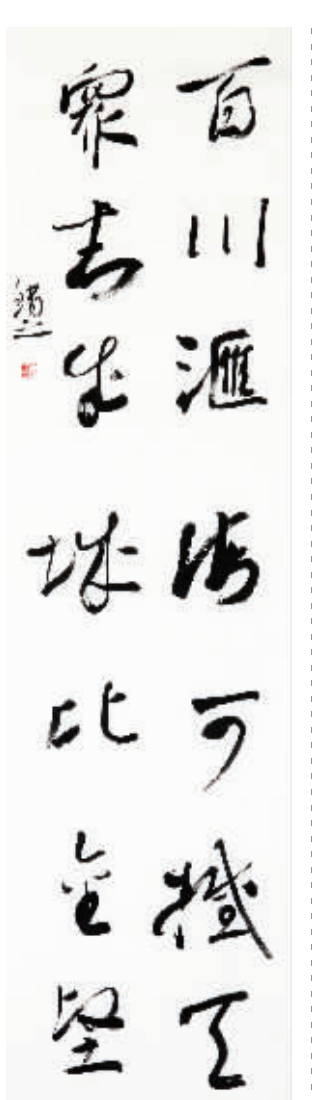 百川滙海可撼天
眾志成城比金堅